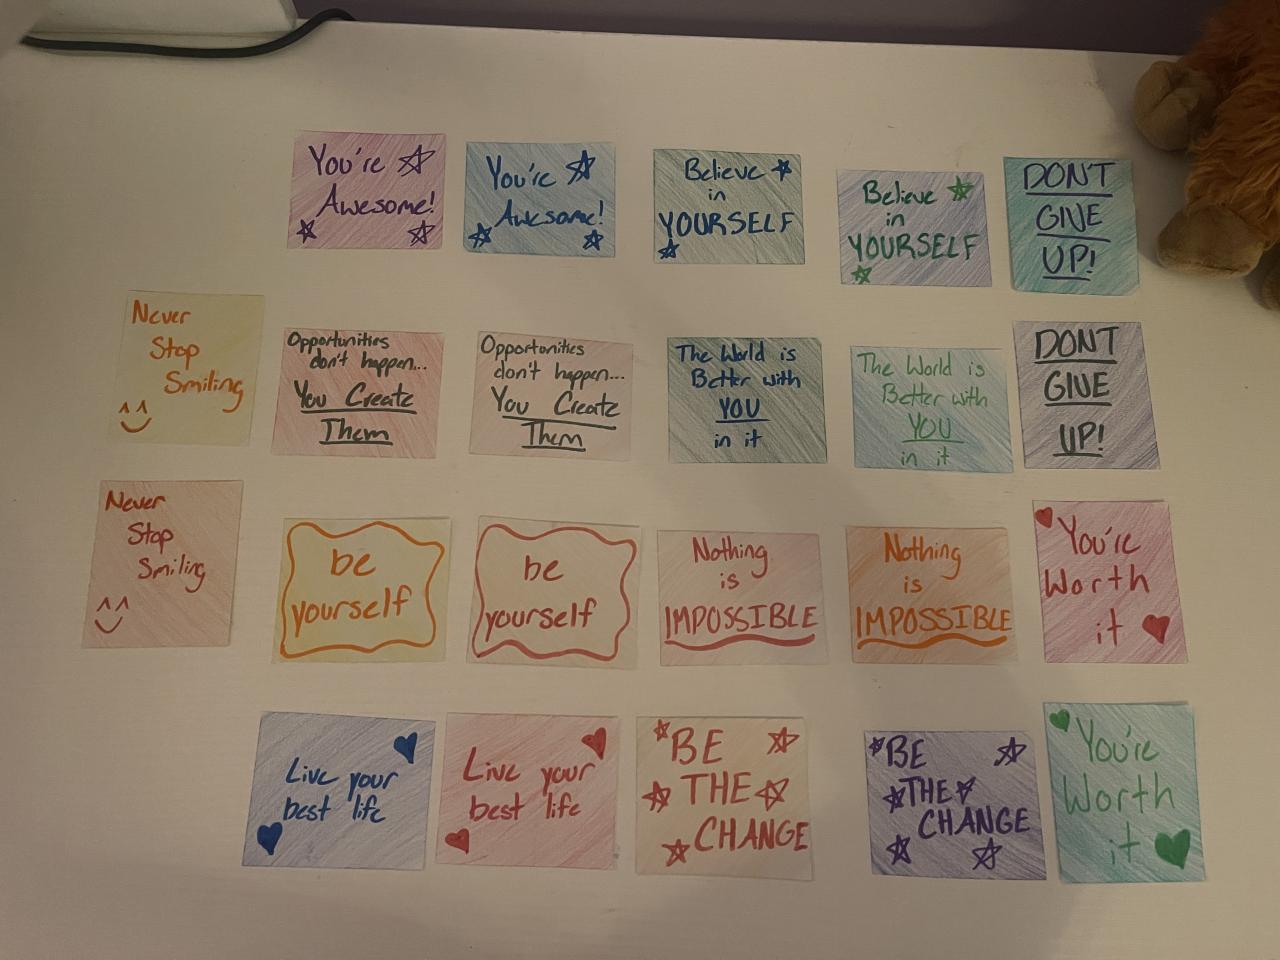 You're
Awesome!
You're
Awesome!
Believe
in
YOURSELF
Believe
in
YOURSELF
DON'T
GIVE
UP!
Never
Stop
Smiling
Opportunities
don't happen...
You Create
Them
Opportunities
don't happen...
You Create
Them
The World is
Better with
YOU
in it
The World is
Better with
YOU
in it
DON'T
GIVE
UP!
Never
Stop
Smiling
be
yourself
be
yourself
Nothing
is
IMPOSSIBLE
Nothing
is
IMPOSSIBLE
You're
Worth
it
Live your
best life
Live your
best life
BE
THE
CHANGE
BE
THE
CHANGE
You're
Worth
it